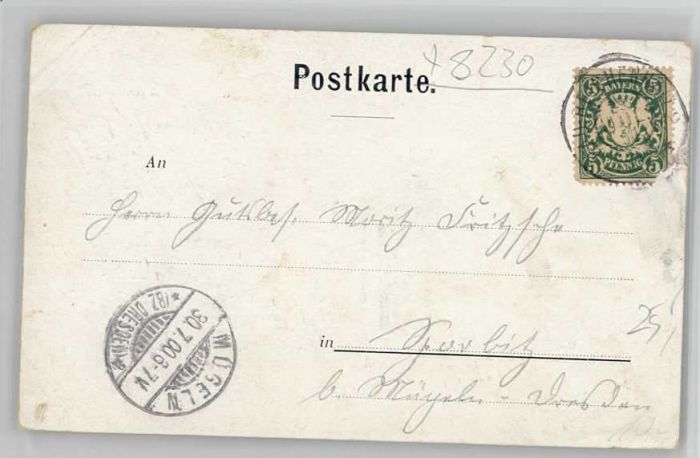 + 8230
Postkarte.
5 BAYERN 5
5 PFENNIG 5
An
Herrn Gutsbes. Moritz Fritzsche
in Sporbitz
b. Mügeln - Dresden
25,
MÜGELN
*(BZ. DRESDEN)*
30.7.00.6-7N.